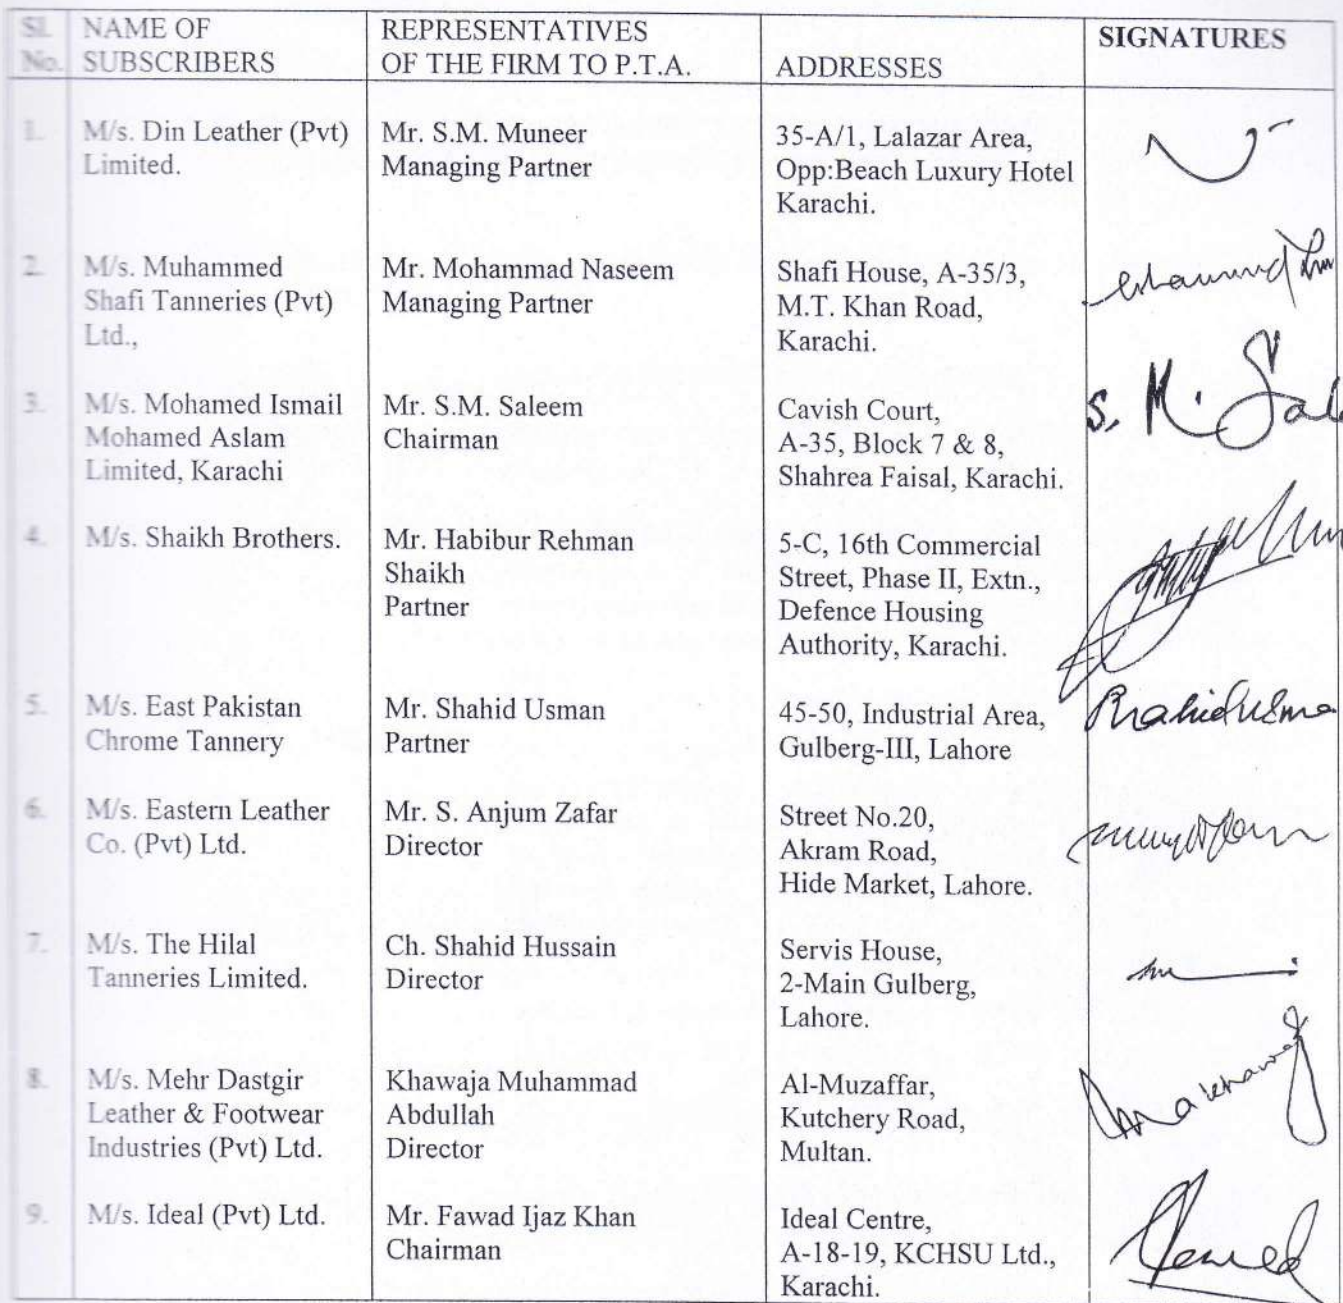 Sl. No.
NAME OF
SUBSCRIBERS
REPRESENTATIVES
OF THE FIRM TO P.T.A.
ADDRESSES
SIGNATURES
1.
M/s. Din Leather (Pvt)
Limited.
Mr. S.M. Muneer
Managing Partner
35-A/1, Lalazar Area,
Opp:Beach Luxury Hotel
Karachi.
2.
M/s. Muhammed
Shafi Tanneries (Pvt)
Ltd.,
Mr. Mohammad Naseem
Managing Partner
Shafi House, A-35/3,
M.T. Khan Road,
Karachi.
3.
M/s. Mohamed Ismail
Mohamed Aslam
Limited, Karachi
Mr. S.M. Saleem
Chairman
Cavish Court,
A-35, Block 7 & 8,
Shahrea Faisal, Karachi.
S. M. Sal
4.
M/s. Shaikh Brothers.
Mr. Habibur Rehman
Shaikh
Partner
5-C, 16th Commercial
Street, Phase II, Extn.,
Defence Housing
Authority, Karachi.
5.
M/s. East Pakistan
Chrome Tannery
Mr. Shahid Usman
Partner
45-50, Industrial Area,
Gulberg-III, Lahore
6.
M/s. Eastern Leather
Co. (Pvt) Ltd.
Mr. S. Anjum Zafar
Director
Street No.20,
Akram Road,
Hide Market, Lahore.
7.
M/s. The Hilal
Tanneries Limited.
Ch. Shahid Hussain
Director
Servis House,
2-Main Gulberg,
Lahore.
8.
M/s. Mehr Dastgir
Leather & Footwear
Industries (Pvt) Ltd.
Khawaja Muhammad
Abdullah
Director
Al-Muzaffar,
Kutchery Road,
Multan.
9.
M/s. Ideal (Pvt) Ltd.
Mr. Fawad Ijaz Khan
Chairman
Ideal Centre,
A-18-19, KCHSU Ltd.,
Karachi.